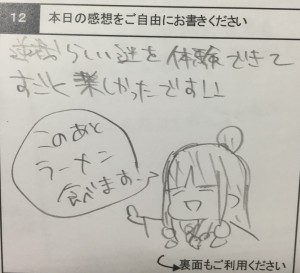 12 本日の感想をご自由にお書きください
らしい謎を体験できて
すごく楽しかったです!!
このあと
ラーメン
食べます。
裏面もご利用ください